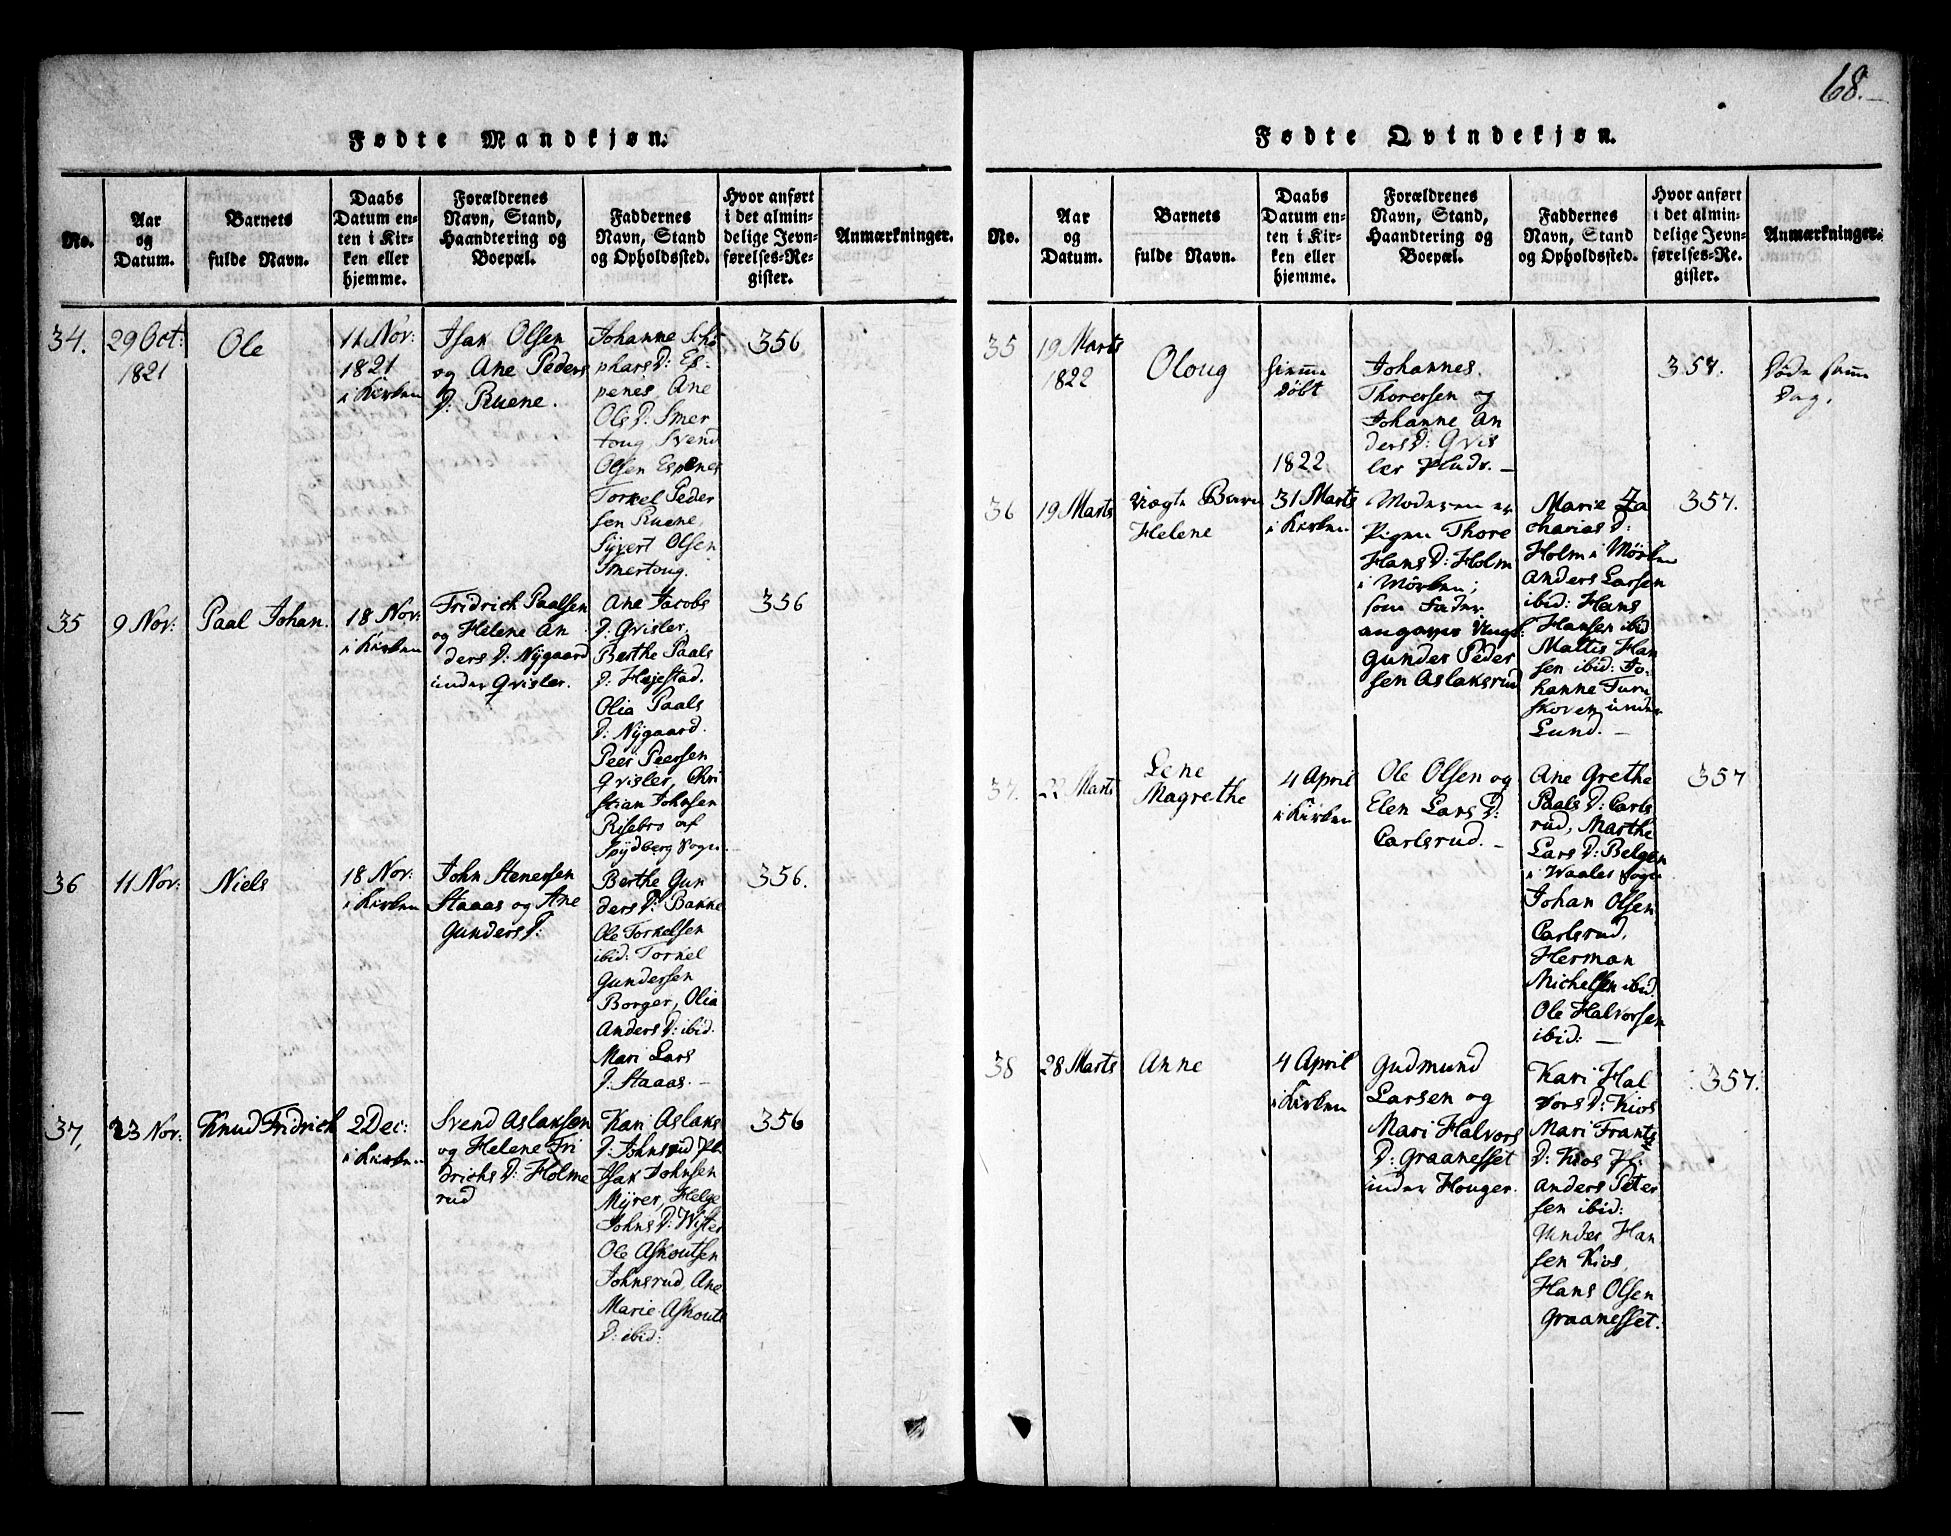 68.
Fødte Mandkjøn.
No.
Aar
og
Datum.
Barnets
fulde Navn.
Daabs
Datum en-
ten i Kir-
ken eller
hjemme.
Forældrenes
Navn, Stand,
Haandtering og
Boepæl.
Faddernes
Navn, Stand
og Opholdssted.
Hvor anført
i det almin-
delige Jevn-
førelses-Re-
gister.
Anmærkninger.
34.
29 Oct:
1821
Ole
11 Nov:
1821
i Kirken
Isak Olsen
og Ane Peders
D: Ruene.
Johanne
phars D: Es-
penes Ane
Ols D: Smer
toug Svend
Olsen Espenes
Torkel Peder
sen Ruene,
Syvert Olsen
Smertoug.
356
35
9 Nov:
Paal Johan.
18 Nov:
i Kirken
Fridrich Paalsen
og Helene An
ders D: Nygaard
under Gvisler.
Ane Jacobs
D: Gvisler.
Berthe Paals
D: Hejestad.
Olia Paals
D: Nygaard.
Peer Peersen
Gvisler, Chri
stian Johnsen
Risebro af
Spydberg Sogn
356
36
11 Nov:
Niels
18 Nov:
i Kirken
John Stenersen
Staaas og Ane
Gunders D:
Berthe Gun
ders D: Bakke
Ole Torkelsen
ibid: Torkel
Gundersen
Borger, Olia
Anders D: ibid.
Mari Lars
D: Staaas.
356.
37,
23 Nov:
Knud Fridrich
2 Dec:
i Kirken
Svend Aslaksen
og Helene Fri
drichs D: Holme
rud
Kari Aslaks
D: Johnsrud Pl:
Isak Johnsen
Myrer, Helge
Johns D: Wister
Ole Askoutsen
Johnsrud, Ane
Marie Askouts
D: ibid:
356
Fødte Qvindekjøn.
No.
Aar
og
Datum.
Barnets
fulde Navn.
Daabs
Datum en-
ten i Kir-
ken eller
hjemme.
Forældrenes
Navn, Stand,
Haandtering og
Boepæl.
Faddernes
Navn, Stand
og Opholdssted.
Hvor anført
i det almin-
delige Jevn-
førelses-Re-
gister.
Anmærkninger.
35
19 Marts
1822
Oloug
døbt
Johannes
Thorersen og
Johanne An
ders D: Gvis
ler
357.
Døde samme
Dag.
36
19 Marts
Uægte Barn
Helene
1822
31 Marts
i Kirken
Moderen er
Pigen Thore
Hans D: Holm
i Mörken;
som Fader
angaves Ungk:
Gunder Peder
sen Aslaksrud
Marie Za
charias D:
Holm i Mörken
Anders Larsen
ibid: Hans
Hansen ibid
Mattis Han
sen ibid: Jo-
hanne
skoven under
Lund.
357.
37.
22 Marts
Lene
Magrethe
4 April
i Kirken
Ole Olsen og
Elen Lars D:
Carlsrud.
Ane Grethe
Paals D: Carls
rud, Marthe
Lars D: Belgen
i Waaler Sogn
Johan Olsen
Carlsrud.
Herman
Michelsen ibid.
Ole Halvorsen
ibid:
357
38
28 Marts
Anne
4 April
i Kirken
Gudmund
Larsen og
Mari Halvors
D: Graanesset
under Houger.
Kari Hal
vors D: Kios
Mari Frants
D: Kios Pl:
Anders Peter
sen ibid:
Gunder Han
sen Kios,
Hans Olsen
Graanesset.
357.